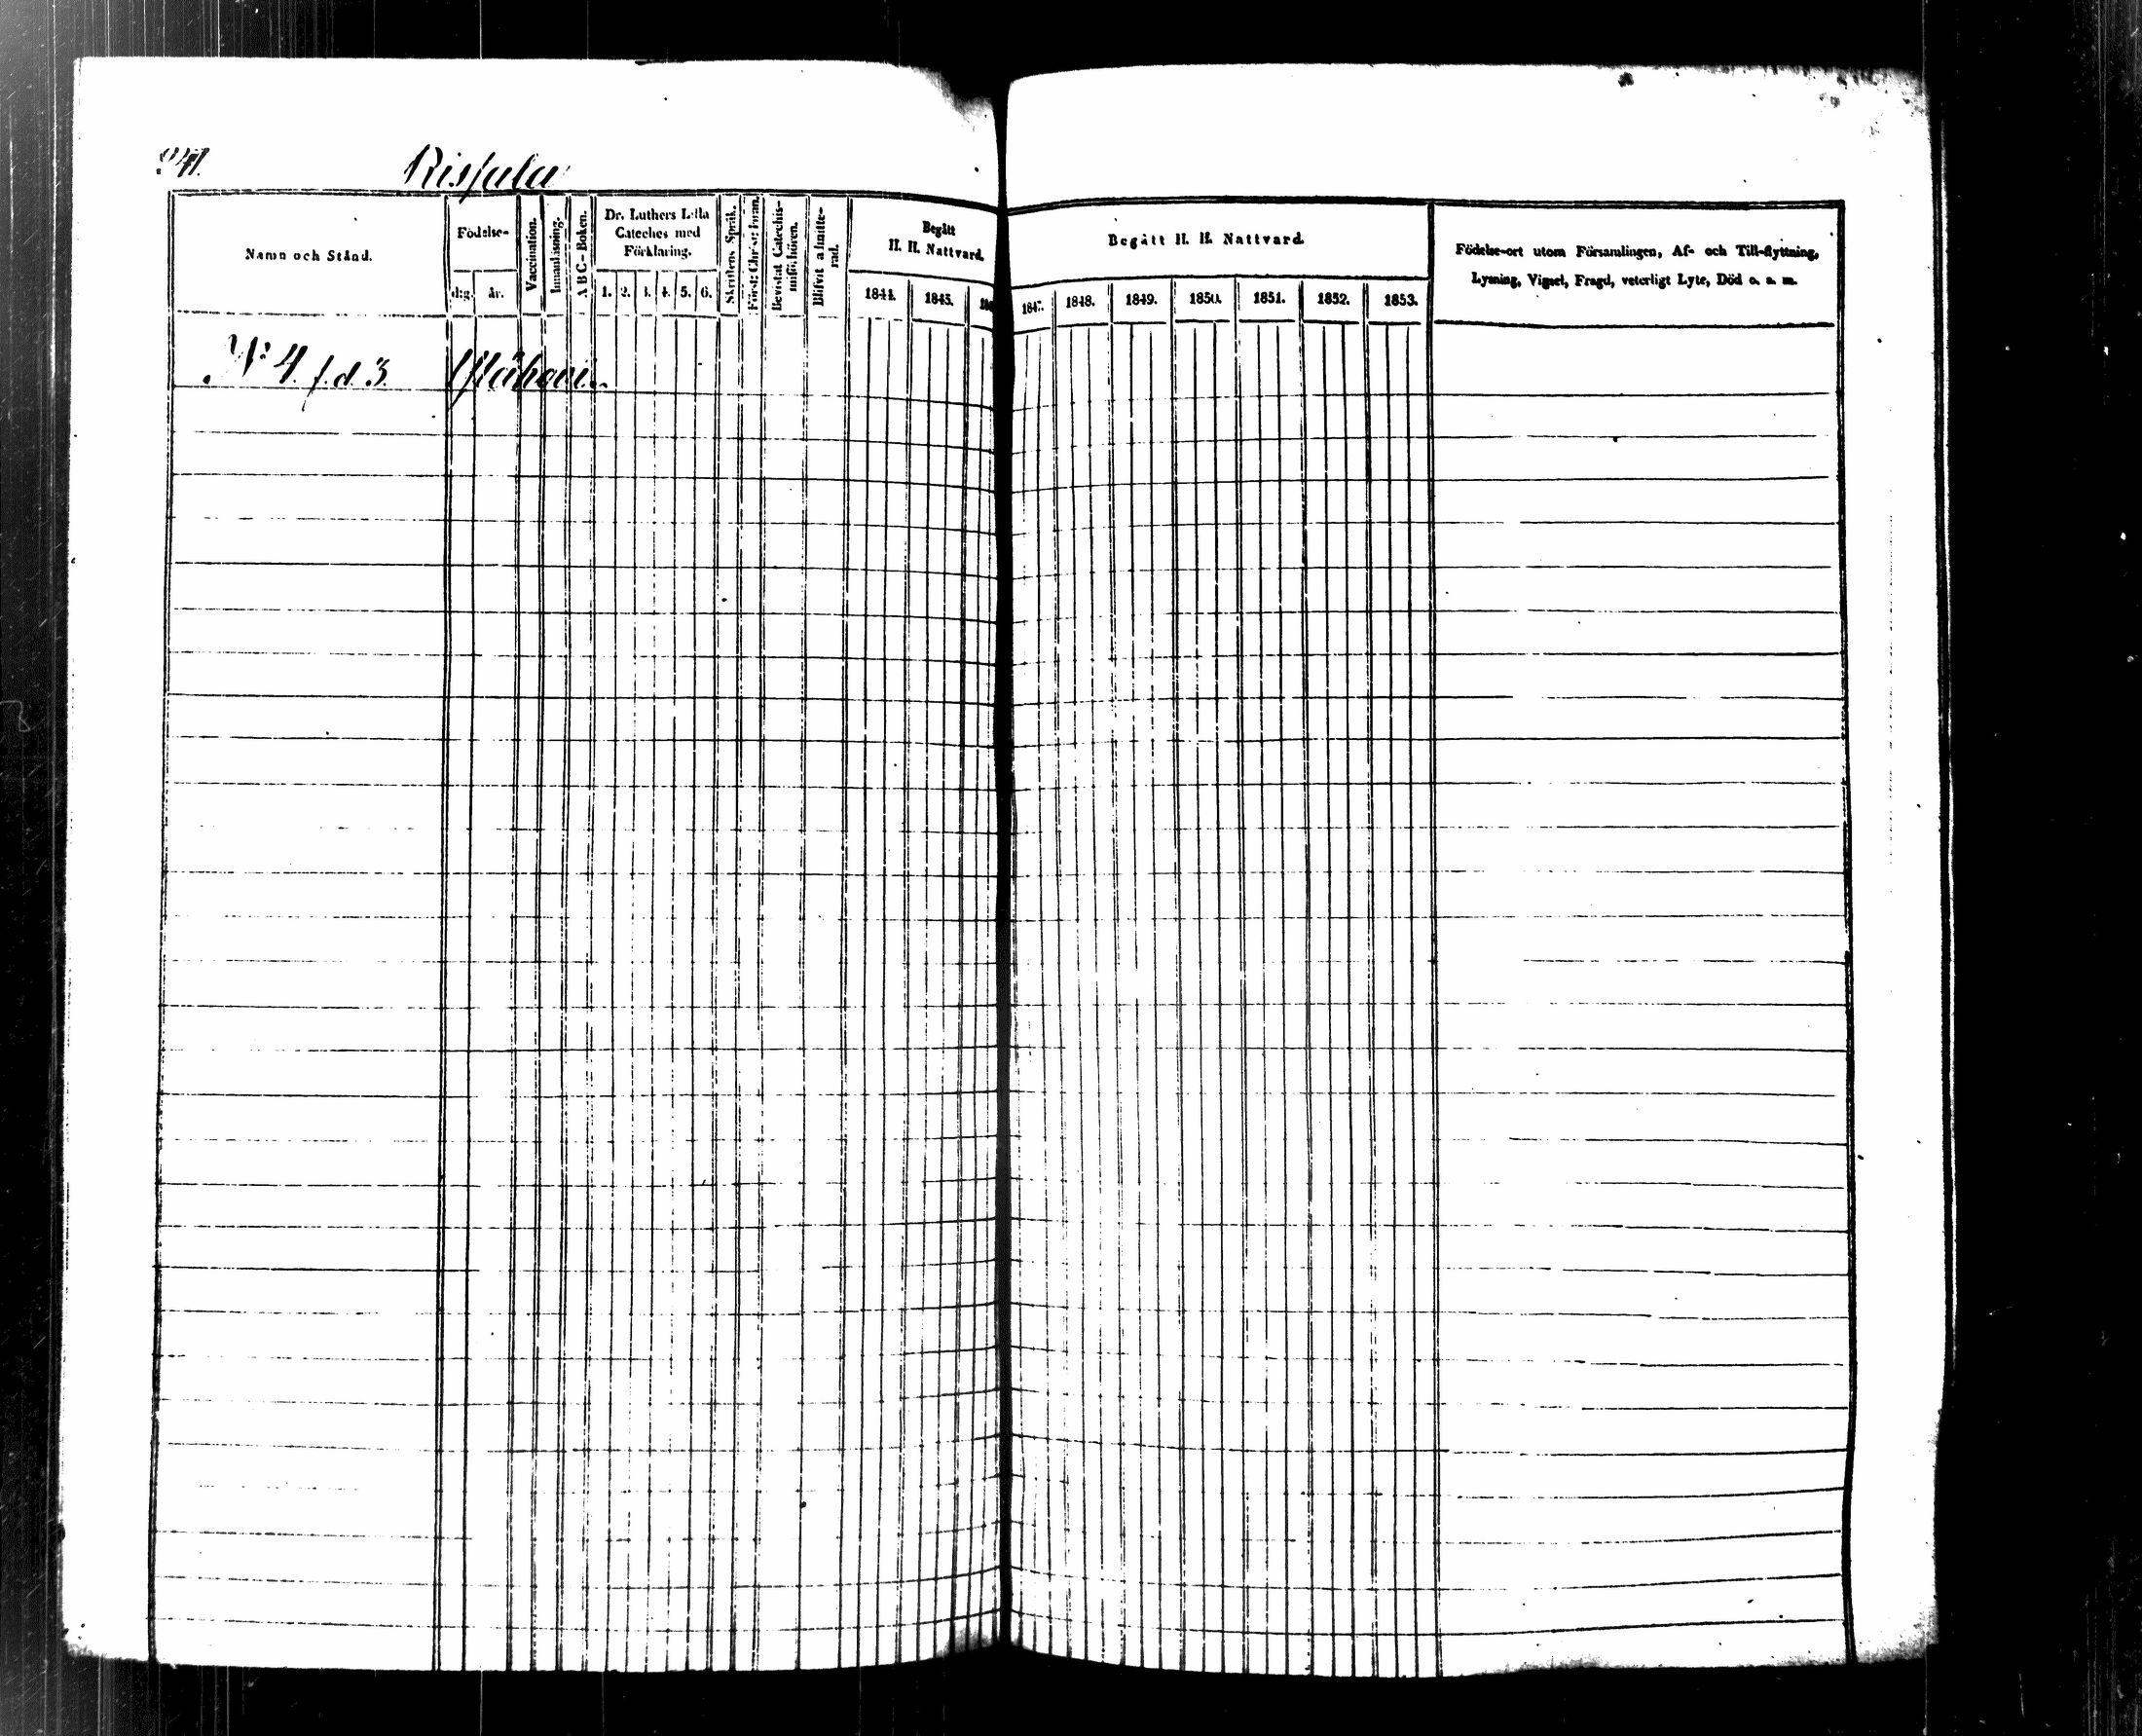 241.
Risjala
Namn och Stånd.
Födelse-
dag.
år.
Vaccination.
Innanläsning.
ABC-Boken.
Dr. Luthers Lilla
Cateches med
Förklaring.
1. 2. 3. 4. 5. 6.
Skriftens Språk.
Bevistat Catechis-
Blifvit admitte-
rad.
Begått
H. H. Nattvard.
1844.
1845.
Begått H. H. Nattvard.
1847.
1848.
1849.
1850.
1851.
1852.
1853.
Födelse-ort utom Församlingen, Af- och Till-flyttning,
Lysning, Vigsel, Fragd, veterligt Lyte, Död o. a. m.
N:o 4. f. d. 3.